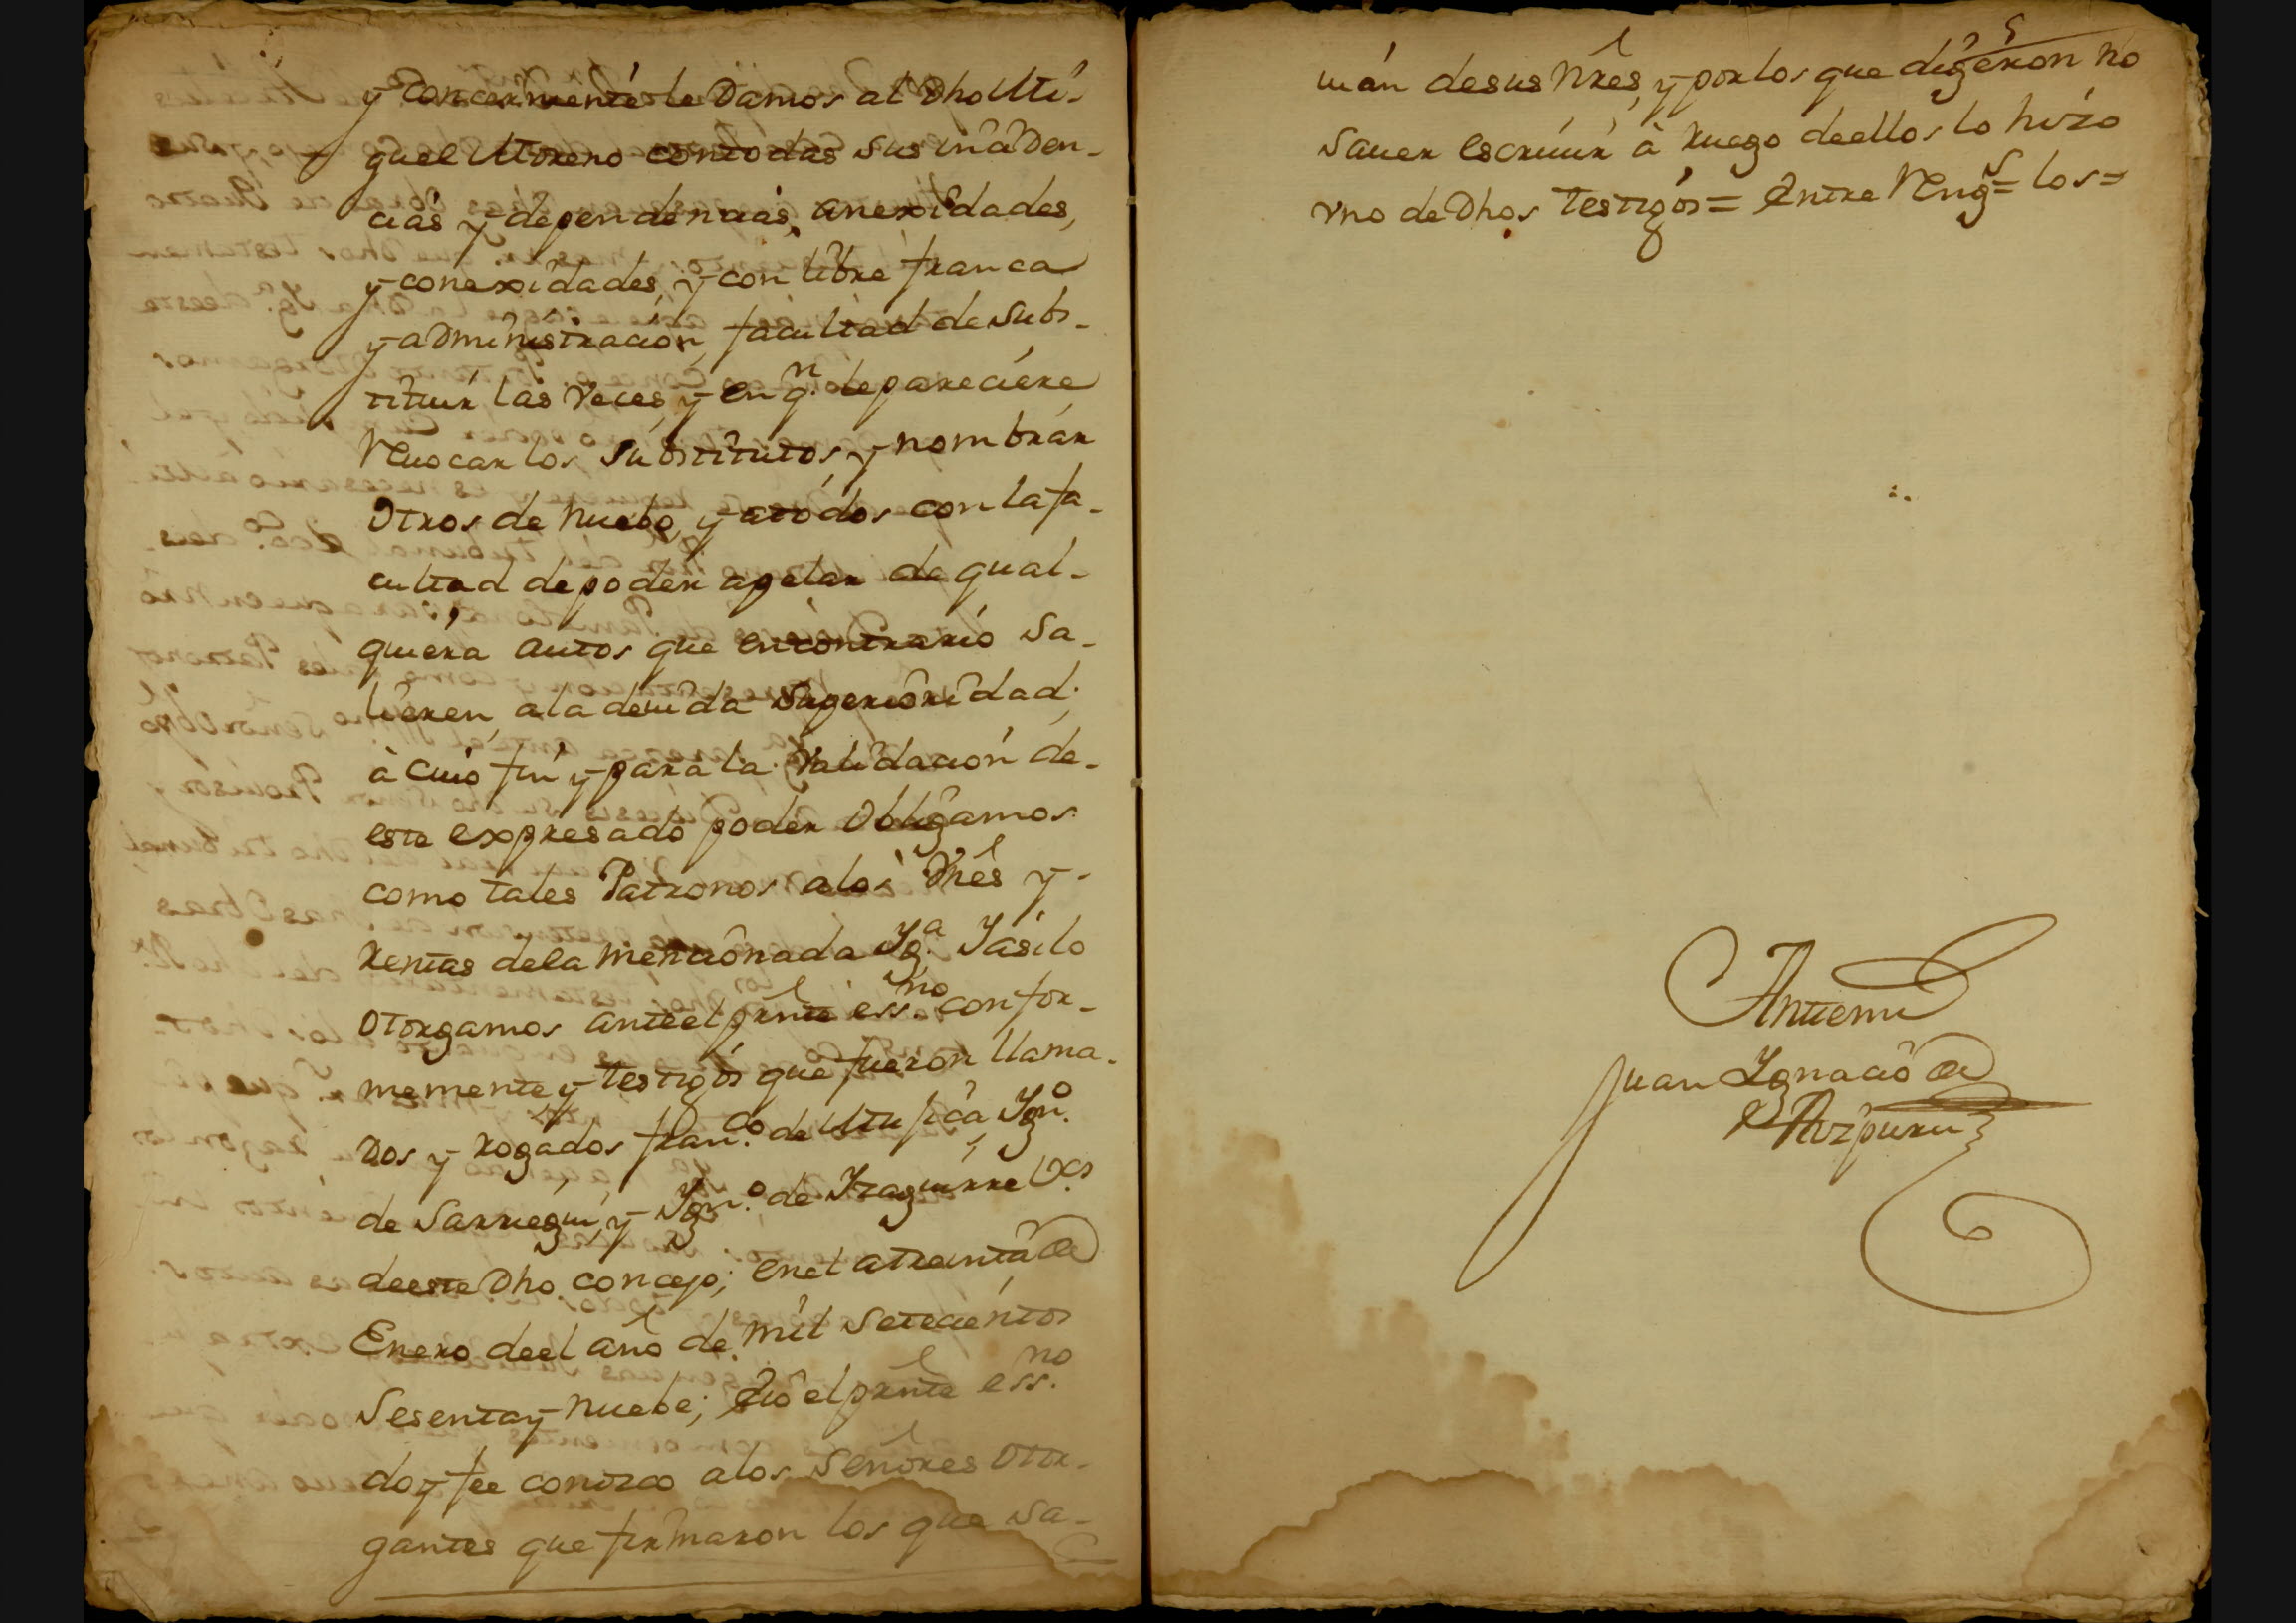 y concerniente le Damos al Dho Mi-
guel Moreno con todas sus inciden-
cias y dependencias, anexidades,
y conexidades, y con libre franca
y administracion, facultad de subs-
tituir las veces, y en qn. le pareciere
Reuocar los substitutos, y nombrar
otros de nuebo, y a todos con la fa-
cultad de poder apelar de qual-
quiera autos que en contrario sa-
lieren, a la deuida superioridad;
à cuio fin y para la validacion de-
este expresado poder obligamos
como tales Patronos a los Vnes y
Rentas de la mencionada Yga. Y asi lo
otorgamos ante el prnte essno. confor-
memente y testigos que fueron llama-
dos y rogados franco. de Mujica, Ygno.
de Sarriegui, y Ygno. de Yzaguirre Vos.
de este Dho concejo; en el a treinta de
Enero de el año de mil setecientos
sesenta y nuebe; E io el prnte essno.
doy fee conozco a los Señores otor-
gantes que firmaron los que sa-
5
uian de sus Nres, y por los que digeron no
sauer escriuir à ruego de ellos lo hizo
vno de Dhos testigos = Entre Rengs = los =
Antemi
Juan Ygnacio de
Azpuru